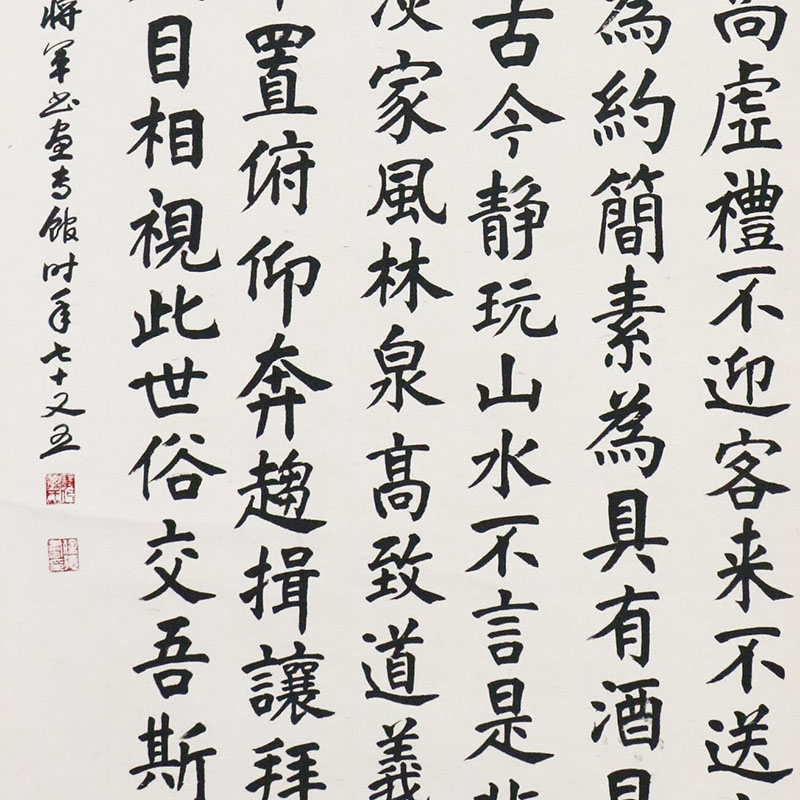 尚虛禮不迎客来不送
為約簡素為具有酒
古今静玩山水不言是
淡家風林泉高致道義
置俯仰奔趨揖讓拜
目相視此世俗交吾斯
将军书画专館时年七十又五